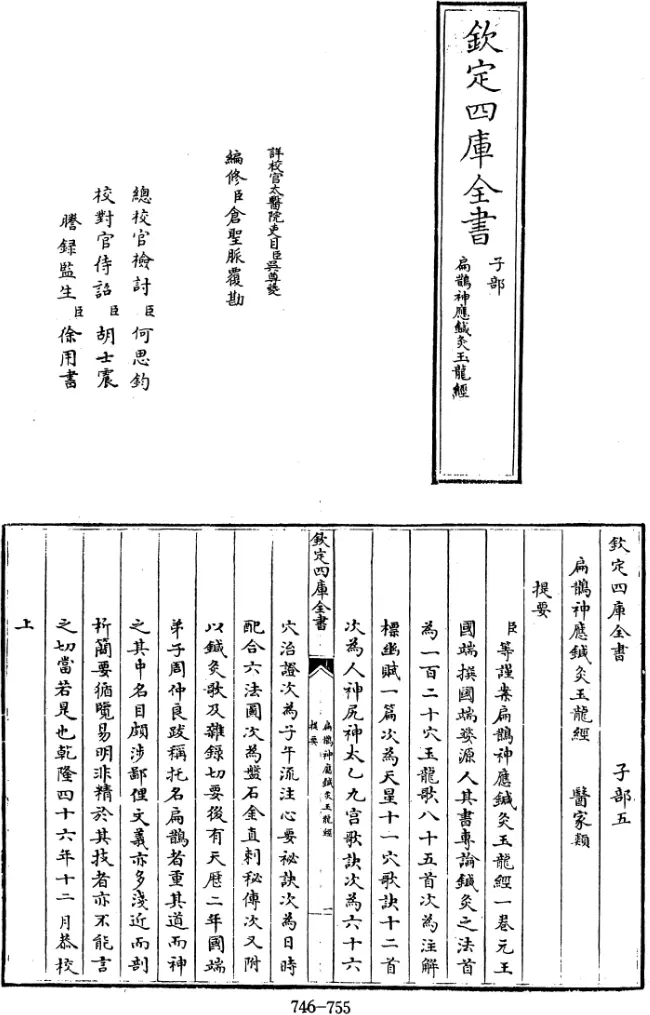 欽定四庫全書
子部
扁鵲神應鍼灸玉龍經
詳校官太醫院吏目臣吳尊夔
編修臣倉聖脈覆勘
總校官檢討臣何思鈞
校對官侍詔臣胡士震
謄録監生臣徐用書
欽定四庫全書 子部五
扁鵲神應鍼灸玉龍經 醫家類
提要
臣等謹案扁鵲神應鍼灸玉龍經一巻元王
國端撰國端婺源人其書專論鍼灸之法首
為一百二十穴玉龍歌八十五首次為注解
標幽賦一篇次為天星十一穴歌訣十二首
次為人神尻神太乙九宮歌訣次為六十六
欽定四庫全書
扁鵲神應鍼灸玉龍經
提要
一
穴治證次為子午流注心要秘訣次為日時
配合六法圖次為盤石金直刺秘傳次又附
以鍼灸歌及雜録切要後有天厯二年國端
弟子周仲良跋稱托名扁鵲者重其道而神
之其中名目頗涉鄙俚文義亦多淺近而剖
析簡要循覽易明非精於其技者亦不能言
之切當若是也乾隆四十六年十二月恭校
上
746-755